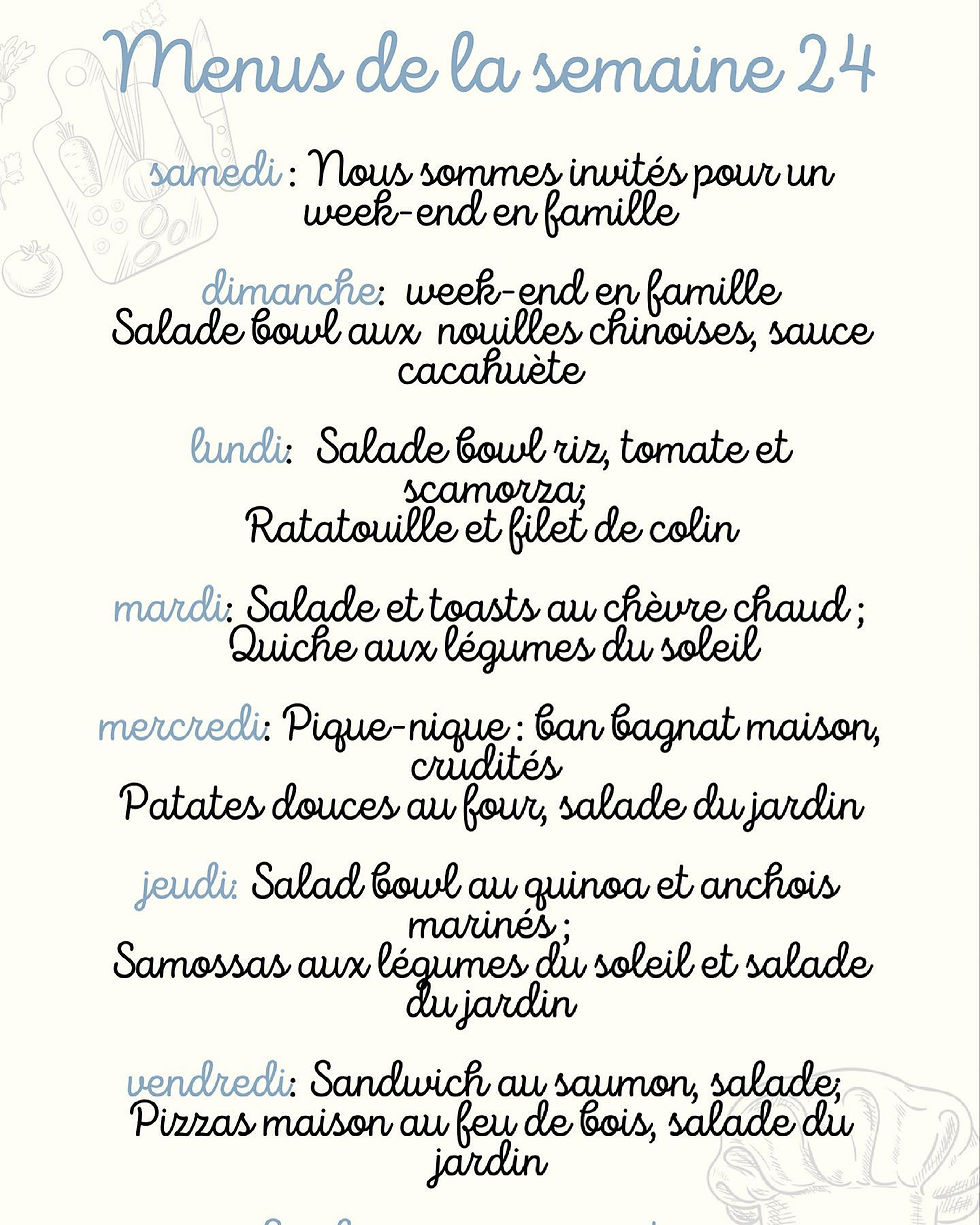 Menus de la semaine 24
samedi : Nous sommes invités pour un
week-end en famille
dimanche: week-end en famille
Salade bowl aux nouilles chinoises, sauce
cacahuète
lundi: Salade bowl riz, tomate et
scamorza;
Ratatouille et filet de colin
mardi: Salade et toasts au chèvre chaud ;
Quiche aux légumes du soleil
mercredi: Pique-nique : ban bagnat maison,
crudités
Patates douces au four, salade du jardin
jeudi: Salad bowl au quinoa et anchois
marinés ;
Samossas aux légumes du soleil et salade
du jardin
vendredi: Sandwich au saumon, salade;
Pizzas maison au feu de bois, salade du
jardin